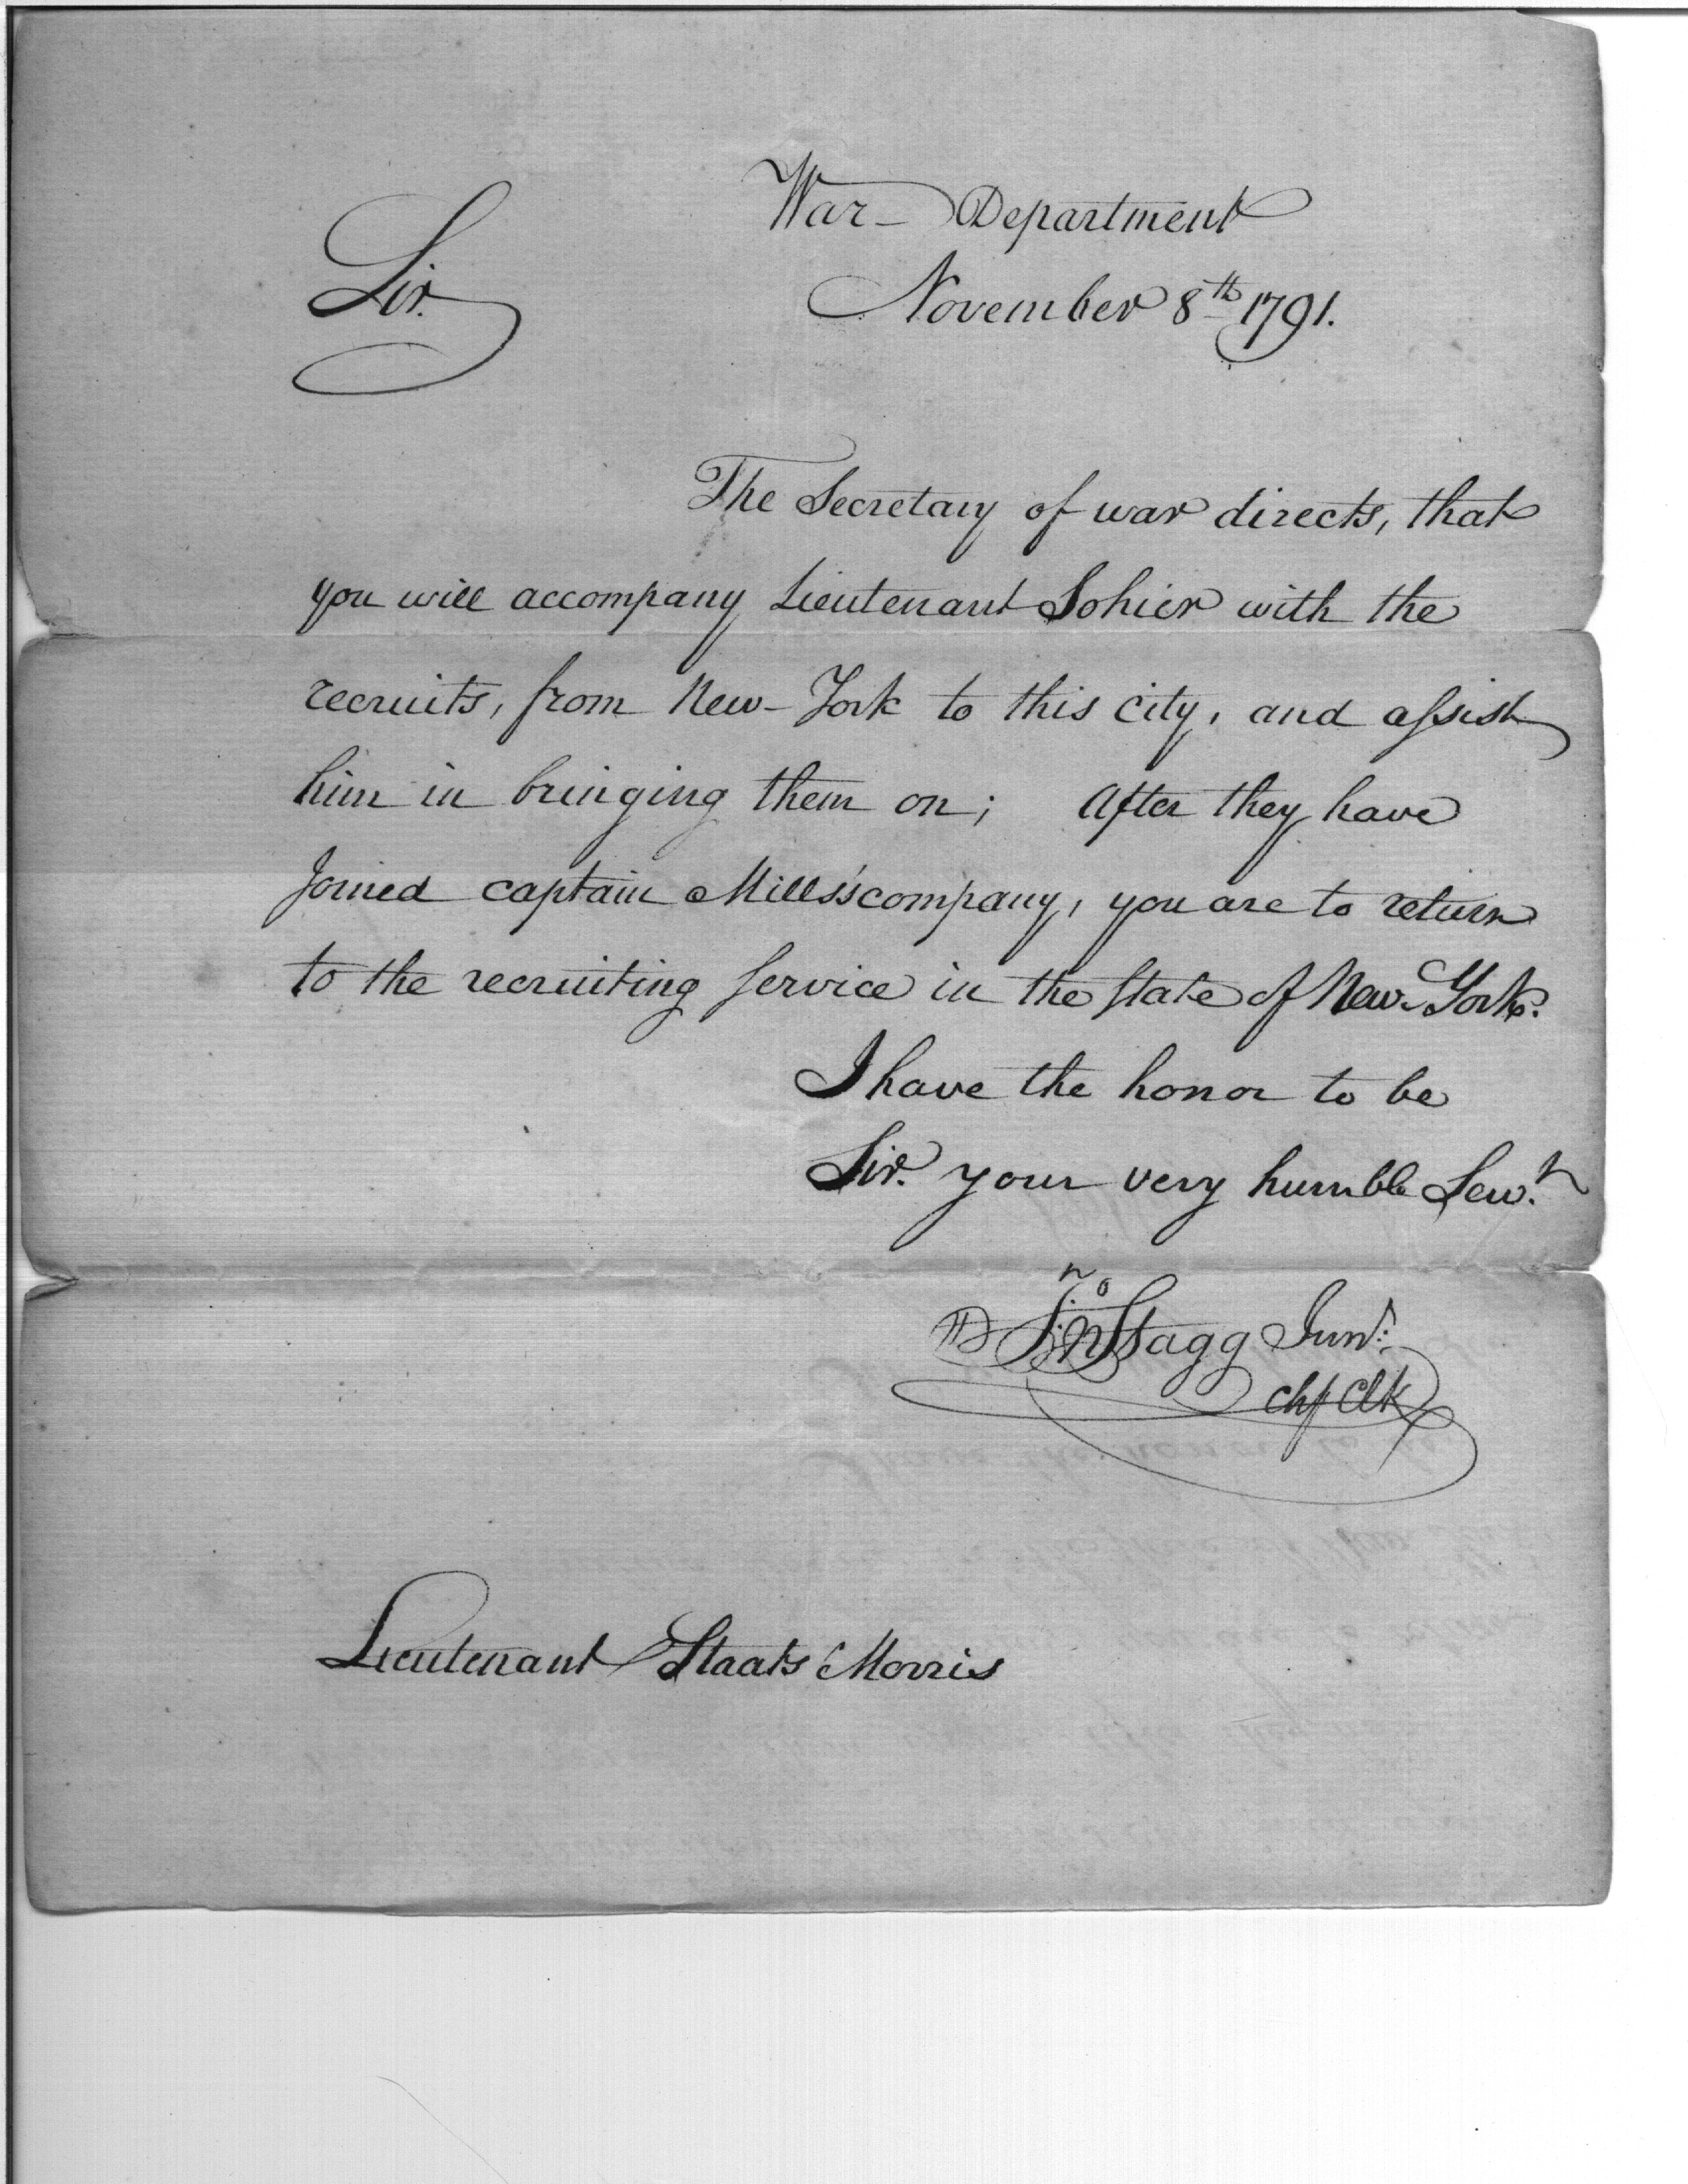 War-Department
Sir.
November 8th 1791.
The Secretary of war directs, that
you will accompany Lieutenant Sohier with the
recruits, from New-York to this city, and assist
him in bringing them on; After they have
Joined captain Mills's company, you are to return
to the recruiting service in the state of New-York.
I have the honor to be
Sir. your very humble Serv.t
Jno Stagg Junr.
chf Clk
Lieutenant Staats Morris